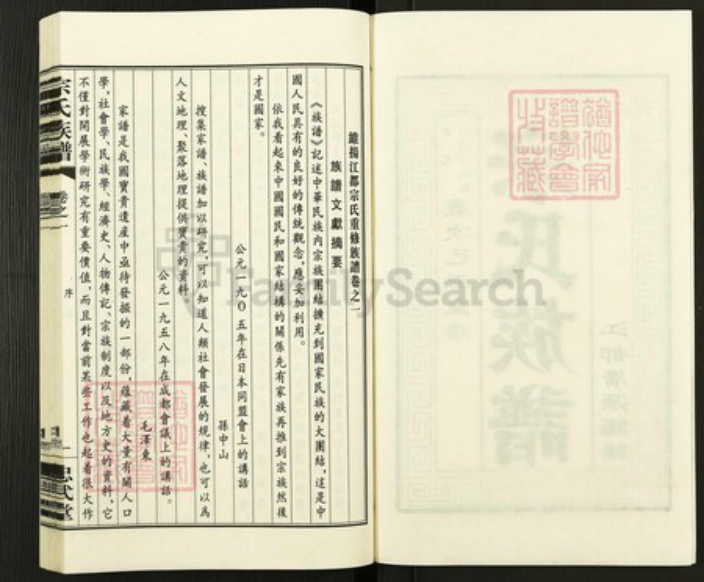 維揚江都宗氏重修族譜卷之一
族譜文獻摘要
《族譜》記述中華民族內宗族團結擴充到國家民族的大團結，這是中
國人民具有的良好的傳統觀念，應妥加利用。
依我看起來中國國民和國家結構的關係先有家族再推到宗族然後
才是國家。
孫中山
公元一九0五年在日本同盟會上的講話
搜集家譜、族譜加以研究，可以知道人類社會發展的規律，也可以為
人文地理、聚落地理提供寶貴的資料。
毛澤東
公元一九五八年在成都會議上的講話。
家譜是我國寶貴遺產中亟待發掘的一部份，蘊藏着大量有關人口
學，社會學、民族學、經濟史、人物傳記、宗族制度以及地方史的資料，它
不僅對開展學術研究有重要價值，而且對當前某些工作也起着很大作
宗氏族譜
卷之一
序
一
忠武堂
FamilySearch
氏族譜
江都